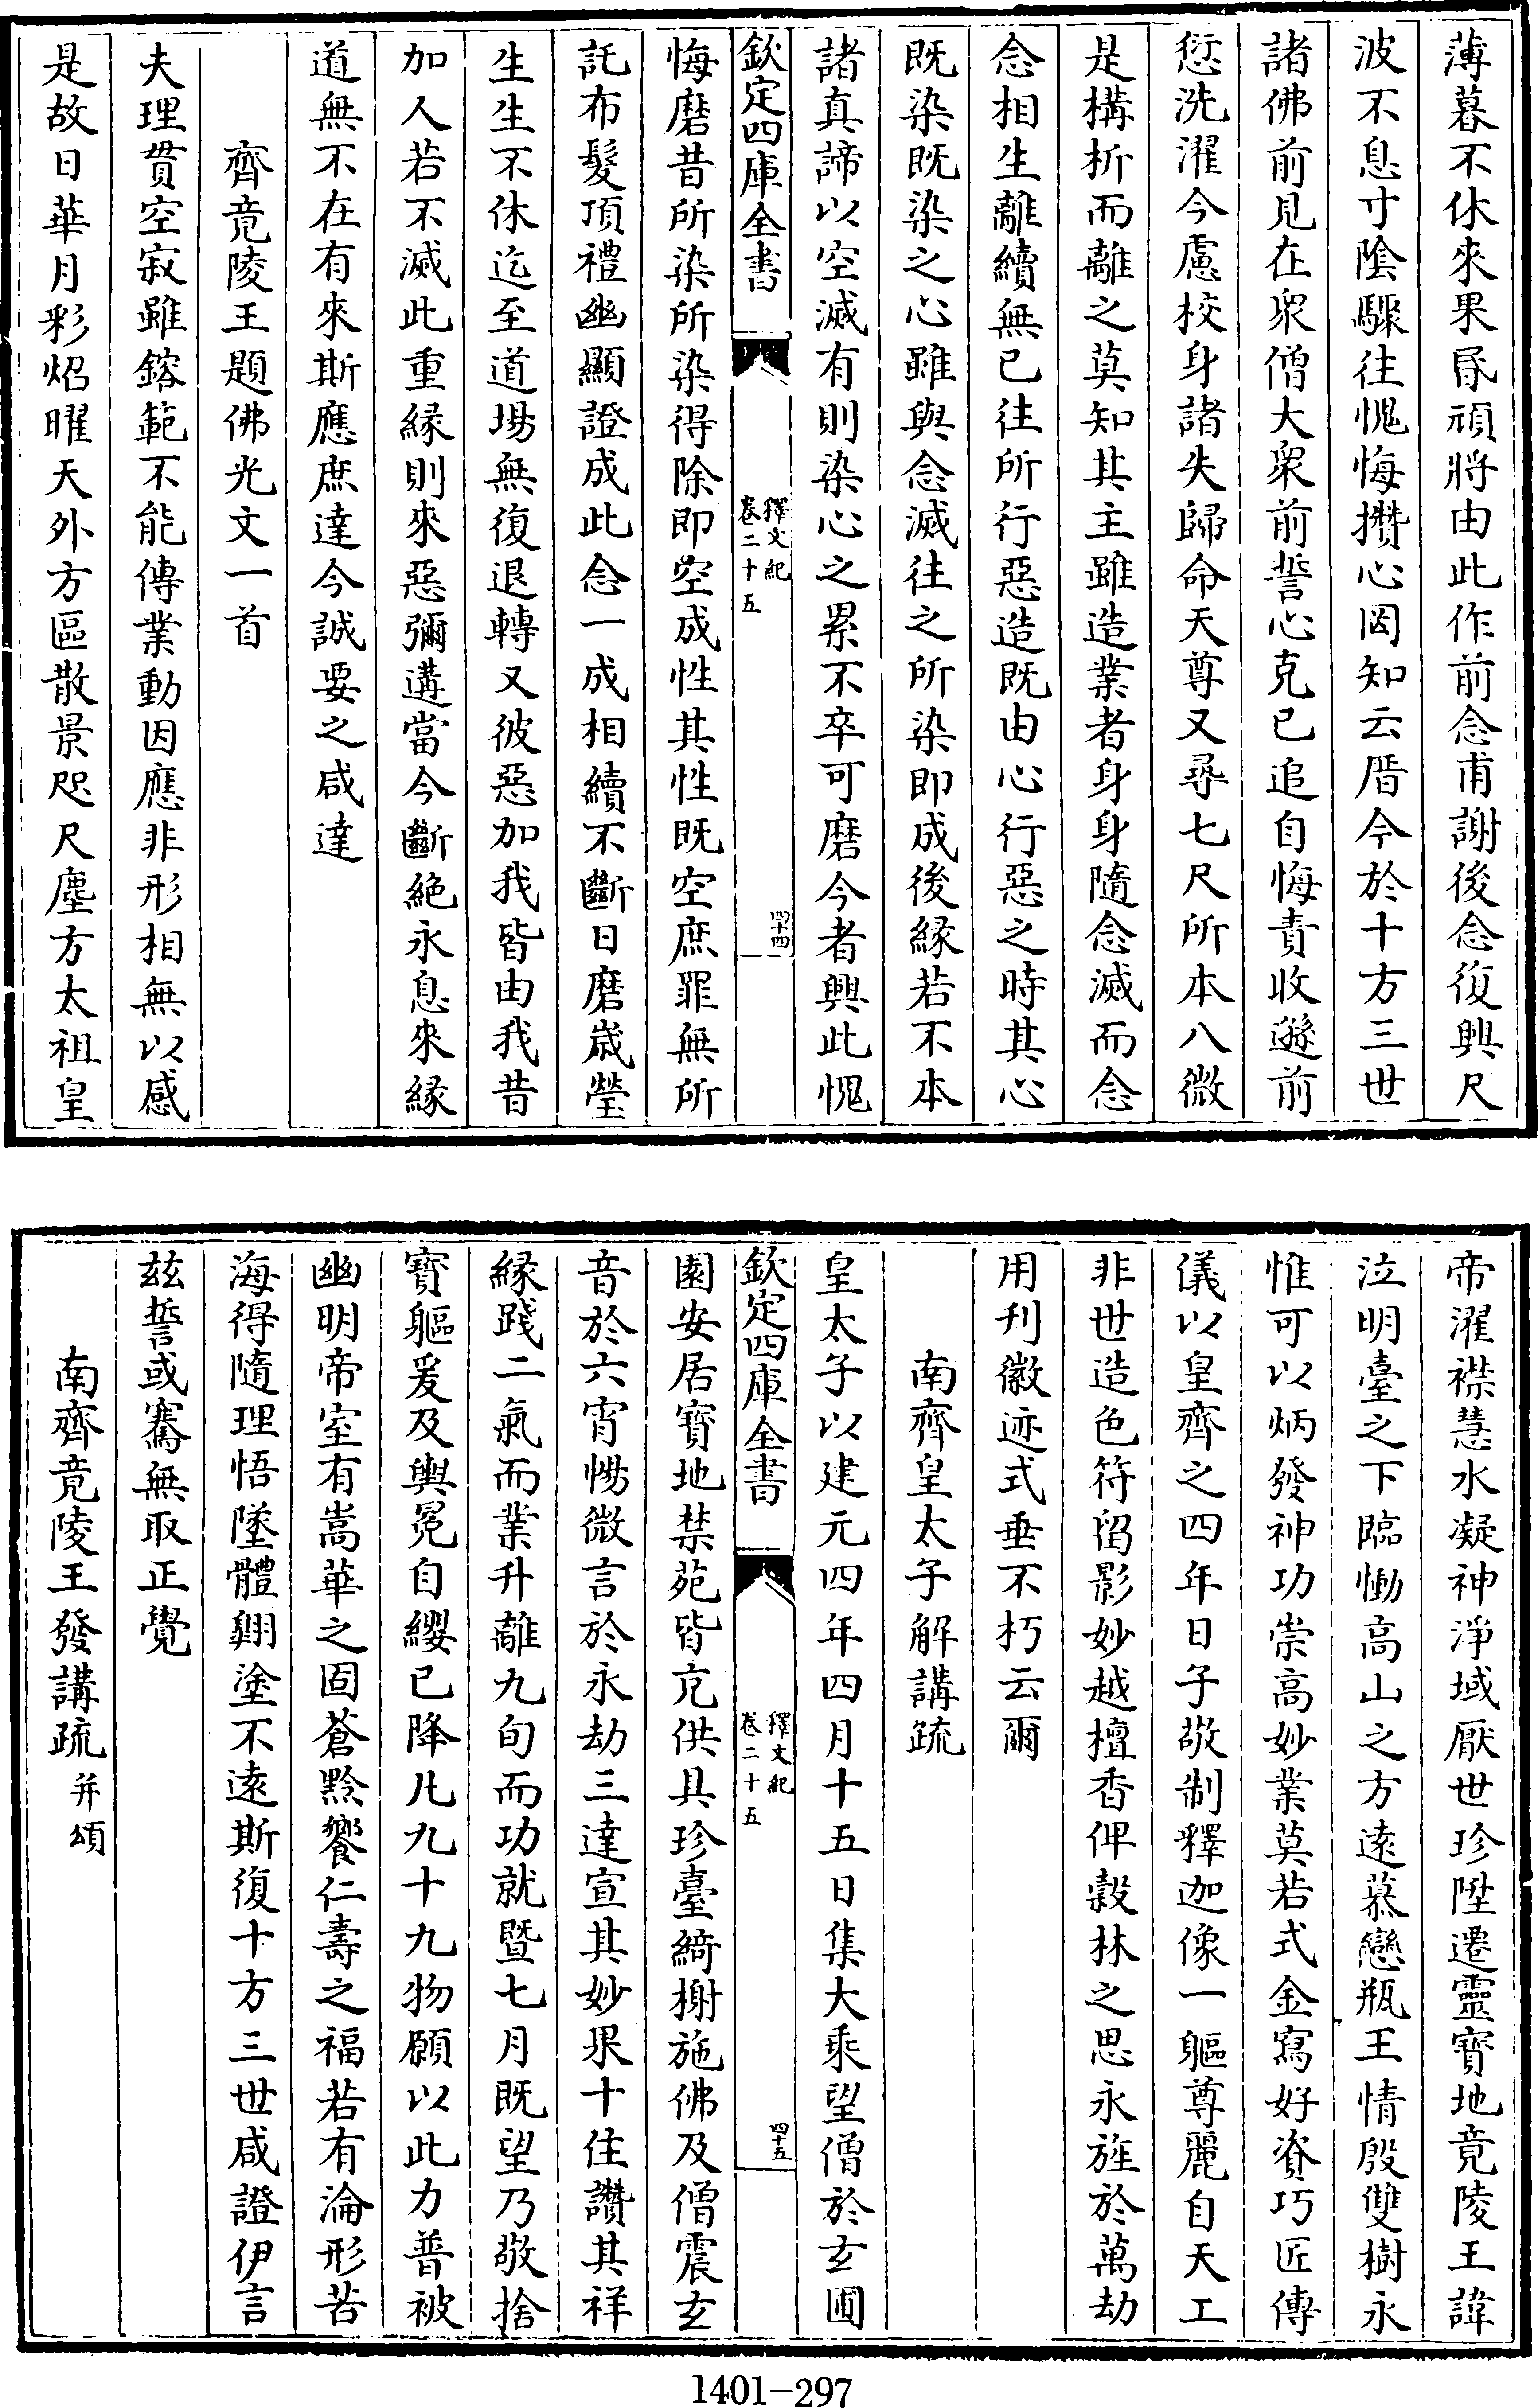 薄暮不休來果昬頑將由此作前念甫謝後念復興尺
波不息寸陰驟往愧悔攢心罔知云厝今於十方三世
諸佛前見在衆僧大衆前誓心克已追自悔責收遜前
愆洗濯今慮校身諸失歸命天尊又尋七尺所本八微
是構析而離之莫知其主雖造業者身身隨念滅而念
念相生離續無已往所行惡造既由心行惡之時其心
既染既染之心雖與念滅往之所染即成後緣若不本
諸真諦以空滅有則染心之累不卒可磨今者興此愧
欽定四庫全書
釋文紀
卷二十五
四十四
悔磨昔所染所染得除即空成性其性既空庶罪無所
託布髮頂禮幽顯證成此念一成相續不斷日磨歲瑩
生生不休迄至道場無復退轉又彼惡加我皆由我昔
加人若不滅此重緣則來惡彌遘當今斷絕永息來緣
道無不在有來斯應庶達今誠要之咸達
齊竟陵王題佛光文一首
夫理貫空寂雖鎔範不能傳業動因應非形相無以感
是故日華月彩炤曜天外方區散景咫尺塵方太祖皇
帝濯襟慧水凝神淨域厭世珍陛遷靈寶地竟陵王諱
泣明臺之下臨慟高山之方遠慕戀瓶王情殷雙樹永
惟可以炳發神功崇高妙業莫若式金寫好資巧匠傳
儀以皇齊之四年日子敬制釋迦像一軀尊麗自天工
非世造色符留影妙越檀香俾穀林之思永旌於萬劫
用刋徽迹式垂不朽云爾
南齊皇太子解講疏
皇太子以建元四年四月十五日集大乘望僧於玄圃
欽定四庫全書
釋文紀
卷二十五
四十五
園安居寶地禁苑皆充供具珍臺綺榭施佛及僧震玄
音於六宵惕微言於永劫三達宣其妙果十住讚其祥
緣踐二氣而業升離九旬而功就暨七月既望乃敬捨
寶軀爰及輿冕自纓已降凡九十九物願以此力普被
幽明帝室有嵩華之固蒼黔饗仁壽之福若有淪形苦
海得隨理悟墜體翾塗不遠斯復十方三世咸證伊言
兹誓或騫無取正覺
南齊竟陵王發講疏并頌
1401-297